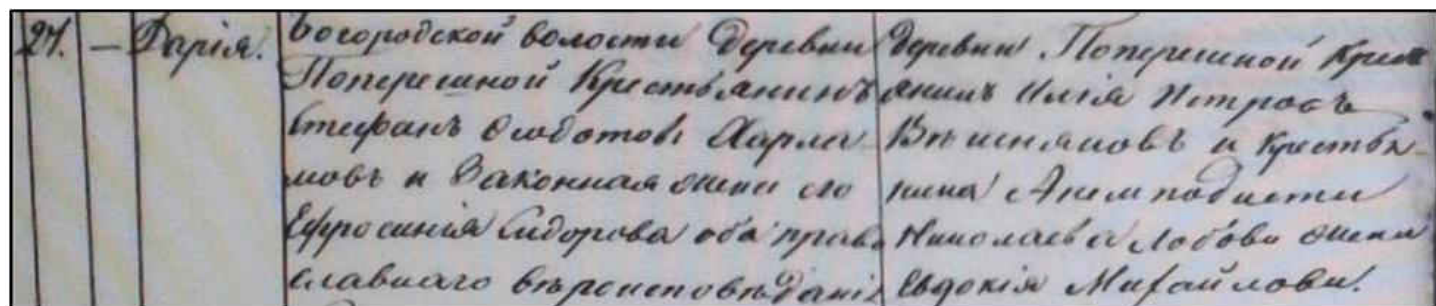 27. — Дарія.
Богородской волости деревни
Поперешной Крестьянинъ
Стефанъ Ѳедотовъ Харла-
мовъ и Законная жена его
Ефросинія Сидорова оба право
славнаго вѣроисповѣданія
деревни Поперешной Крест
янинъ Илія Петровъ
Вѣшняковъ и Крестья-
нина Анемподиста
Николаева Лобова жена
Евдокія Михайлова.